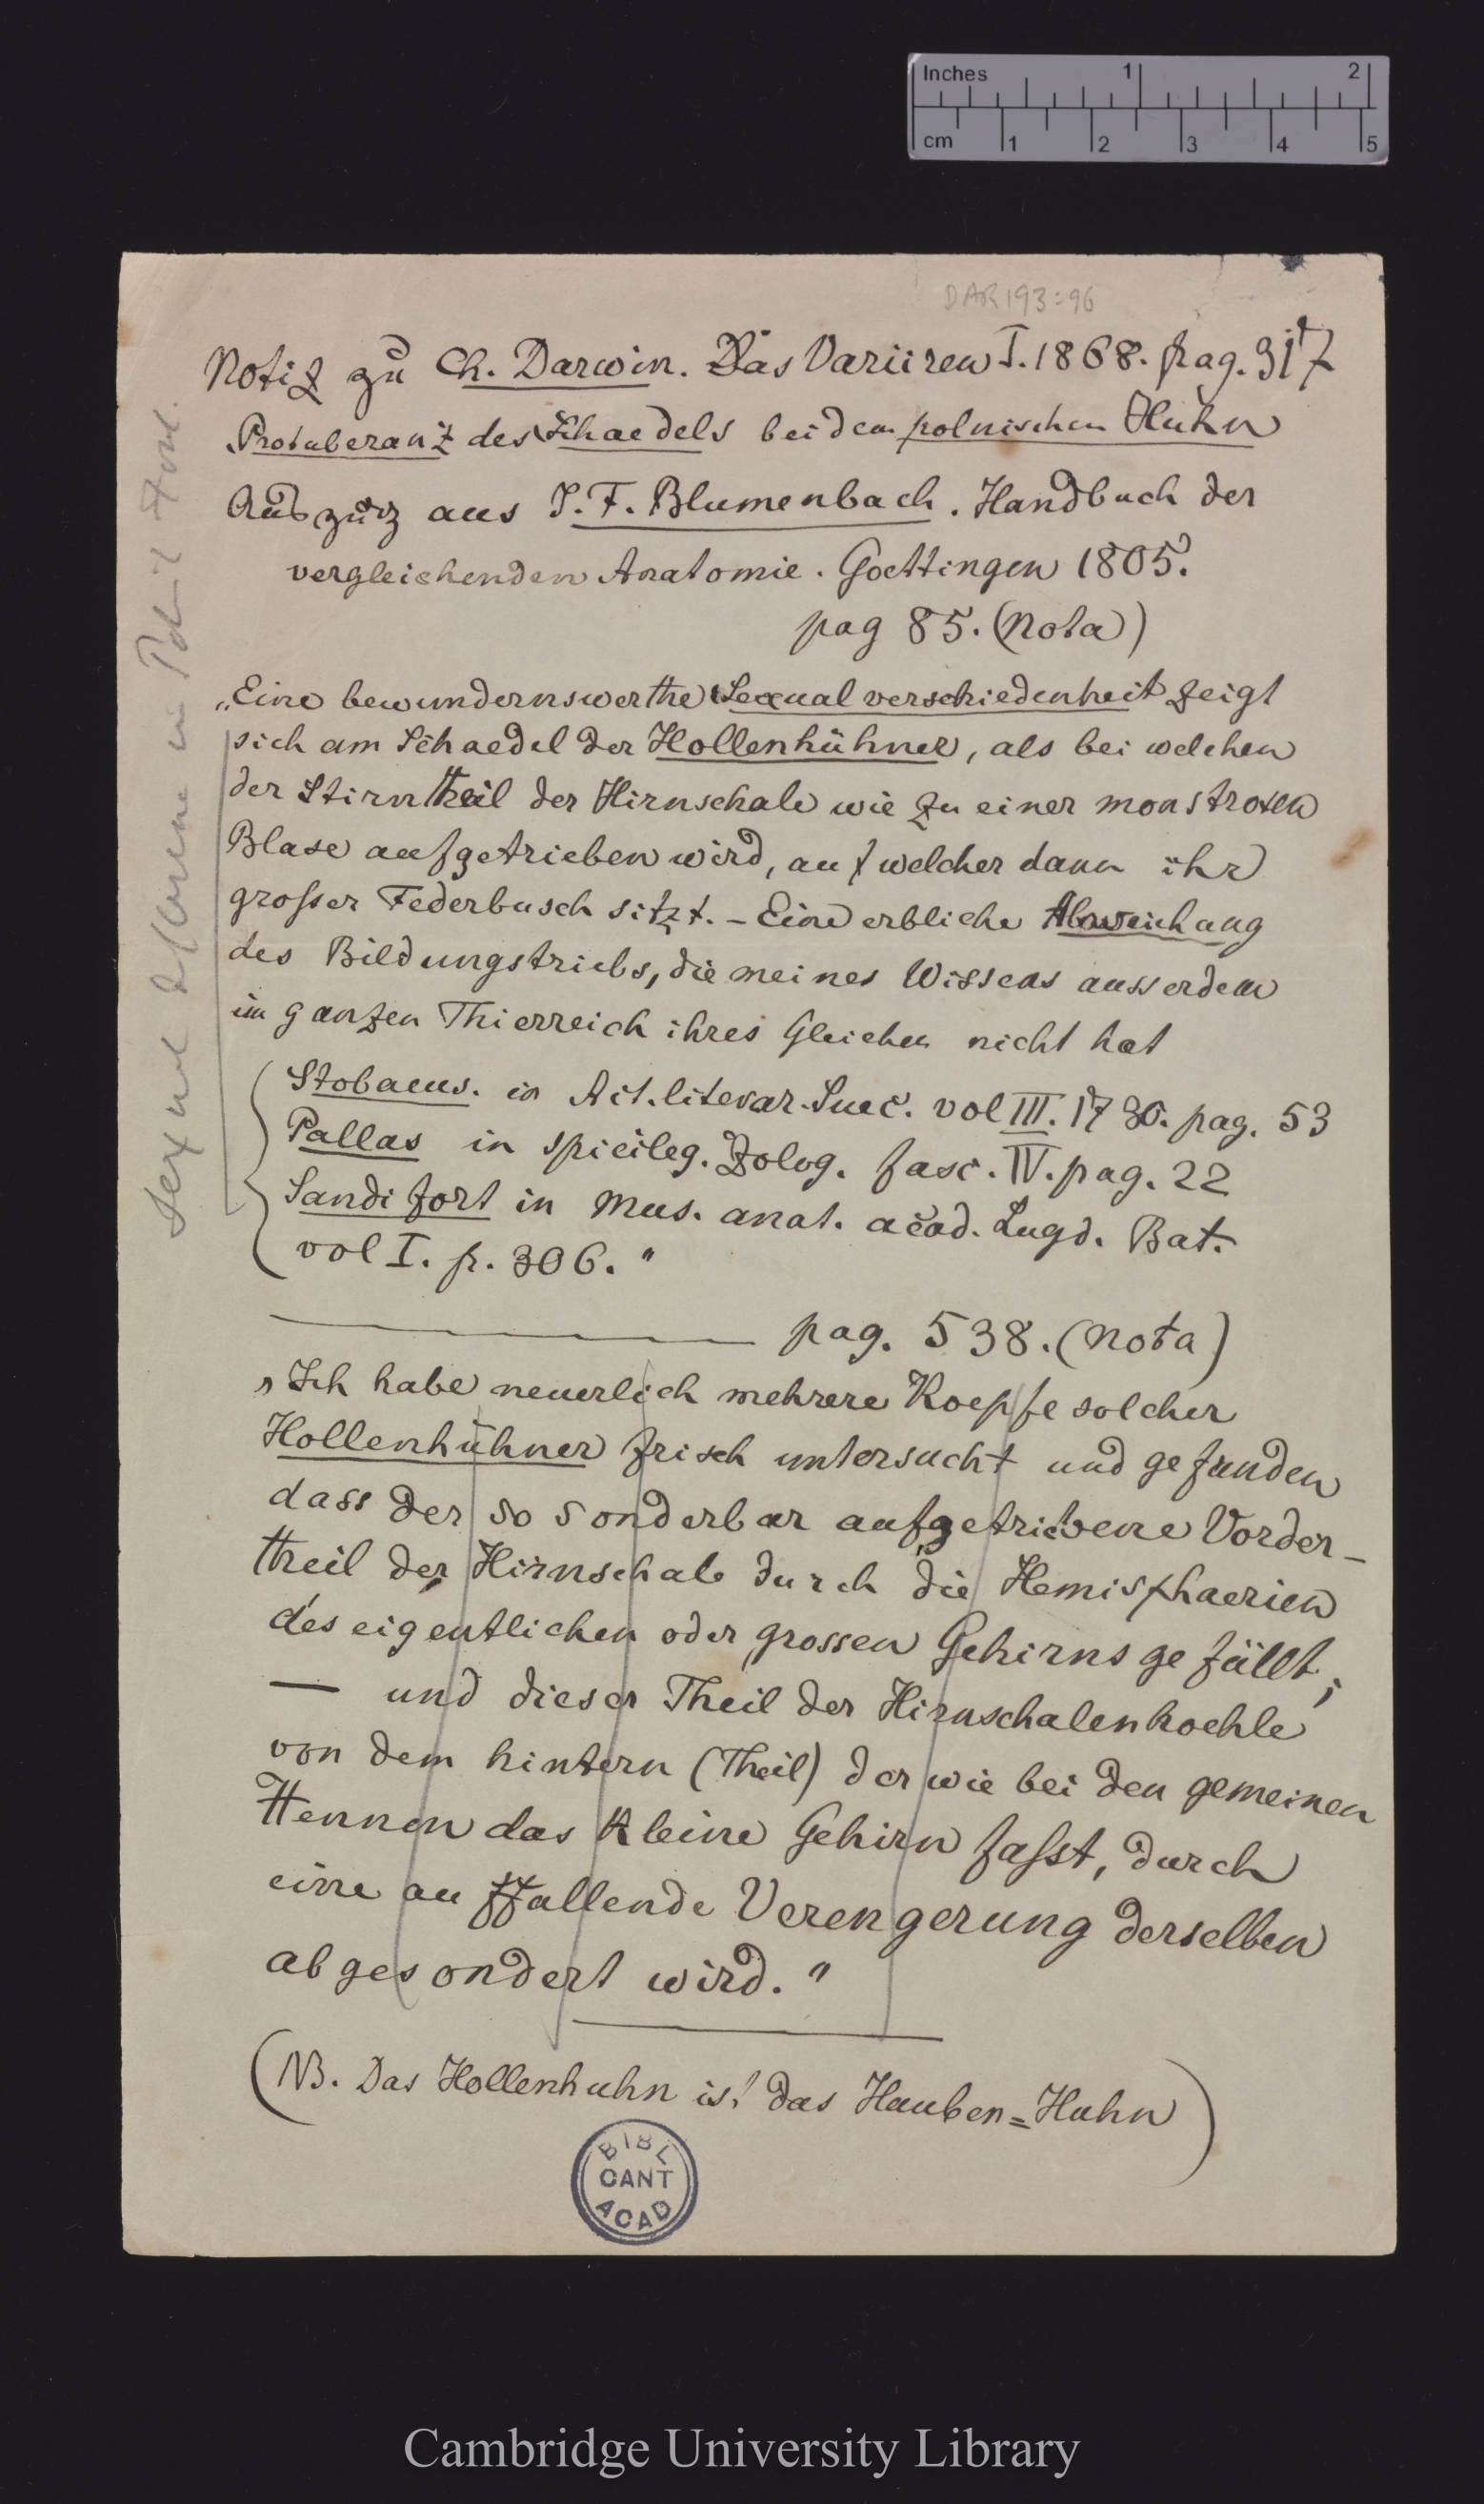 Inches 1 2
cm 1 2 3 4 5
DAR 193:96
Notiz zu Ch. Darwin. Das Variiren I. 1868. pag. 317
Protuberanz des Schaedels bei dem polnischen Huhn
Auszug aus J. F. Blumenbach. Handbuch der
vergleichenden Anatomie. Goettingen 1805.
pag 85. (Nota)
„Eine bewundernswerthe Sexualverschiedenheit zeigt
sich am Schaedel der Hollenhühner, als bei welchen
der Stirntheil der Hirnschale wie zu einer monstrosen
Blase aufgetrieben wird, auf welcher dann ihr
grosser Federbusch sitzt. – Eine erbliche Abweichung
des Bildungstriebs, die meines Wissens ausserdem
im ganzen Thierreich ihres Gleichen nicht hat
Stobaeus. in Act. literar. Suec. vol III. 1730. pag. 53
Pallas in spicileg. Zolog. fasc. IV. pag. 22
Sandifort in Mus. anat. acad. Lugd. Bat.
vol I. p. 306."
pag. 538. (Nota)
„Ich habe neuerlich mehrere Koepfe solcher
Hollenhühner frisch untersucht und gefunden
dass der so sonderbar aufgetriebene Vorder-
theil der Hirnschale durch die Hemisphaerien
des eigentlichen oder grossen Gehirns gefüllt,
— und dieser Theil der Hirnschalenhoehle
von dem hintern (Theil) der wie bei den gemeinen
Hennen das kleine Gehirn fasst, durch
eine auffallende Verengerung derselben
abgesondert wird."
(NB. Das Hollenhuhn ist das Hauben=Huhn)
Sexual difference in Polish Fowl.
BIBL
CANT
ACAD
Cambridge University Library